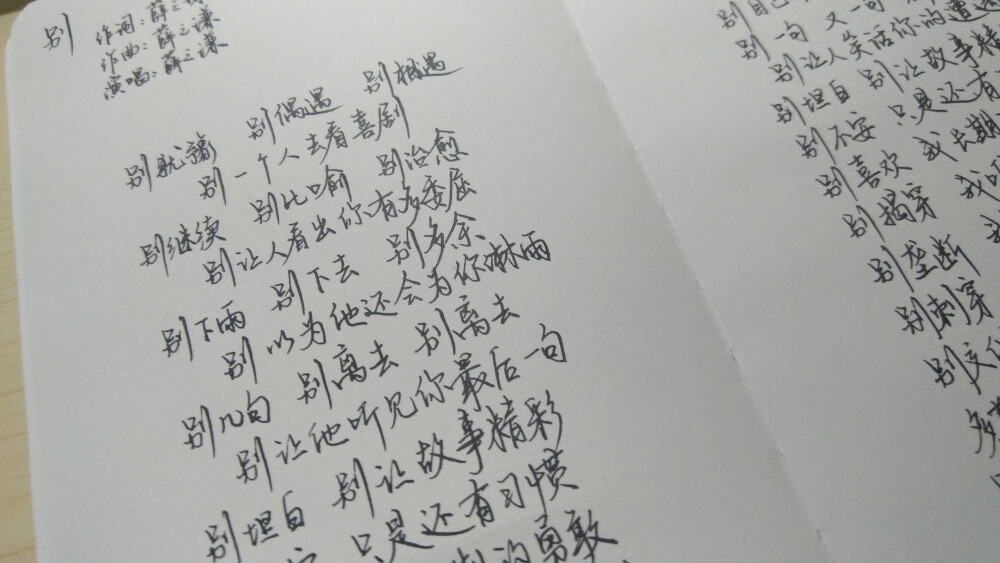 别
作词：薛之谦
作曲：薛之谦
演唱：薛之谦
别就范 别偶遇 别相遇
别一个人去看喜剧
别继续 别比喻 别治愈
别让人看出你有多委屈
别下雨 别下去 别多余
别以为他还会为你淋雨
别几句 别离去 别离去
别让他听见你最后一句
别坦白 别让故事精彩
只是还有习惯
的勇敢
别自己
别一句 又一句
别让人笑话你的遭遇
别坦白 别让故事精
别不安 只是还有
别喜欢 我长期
别揭穿 我
别垄断
别刺穿
别交代